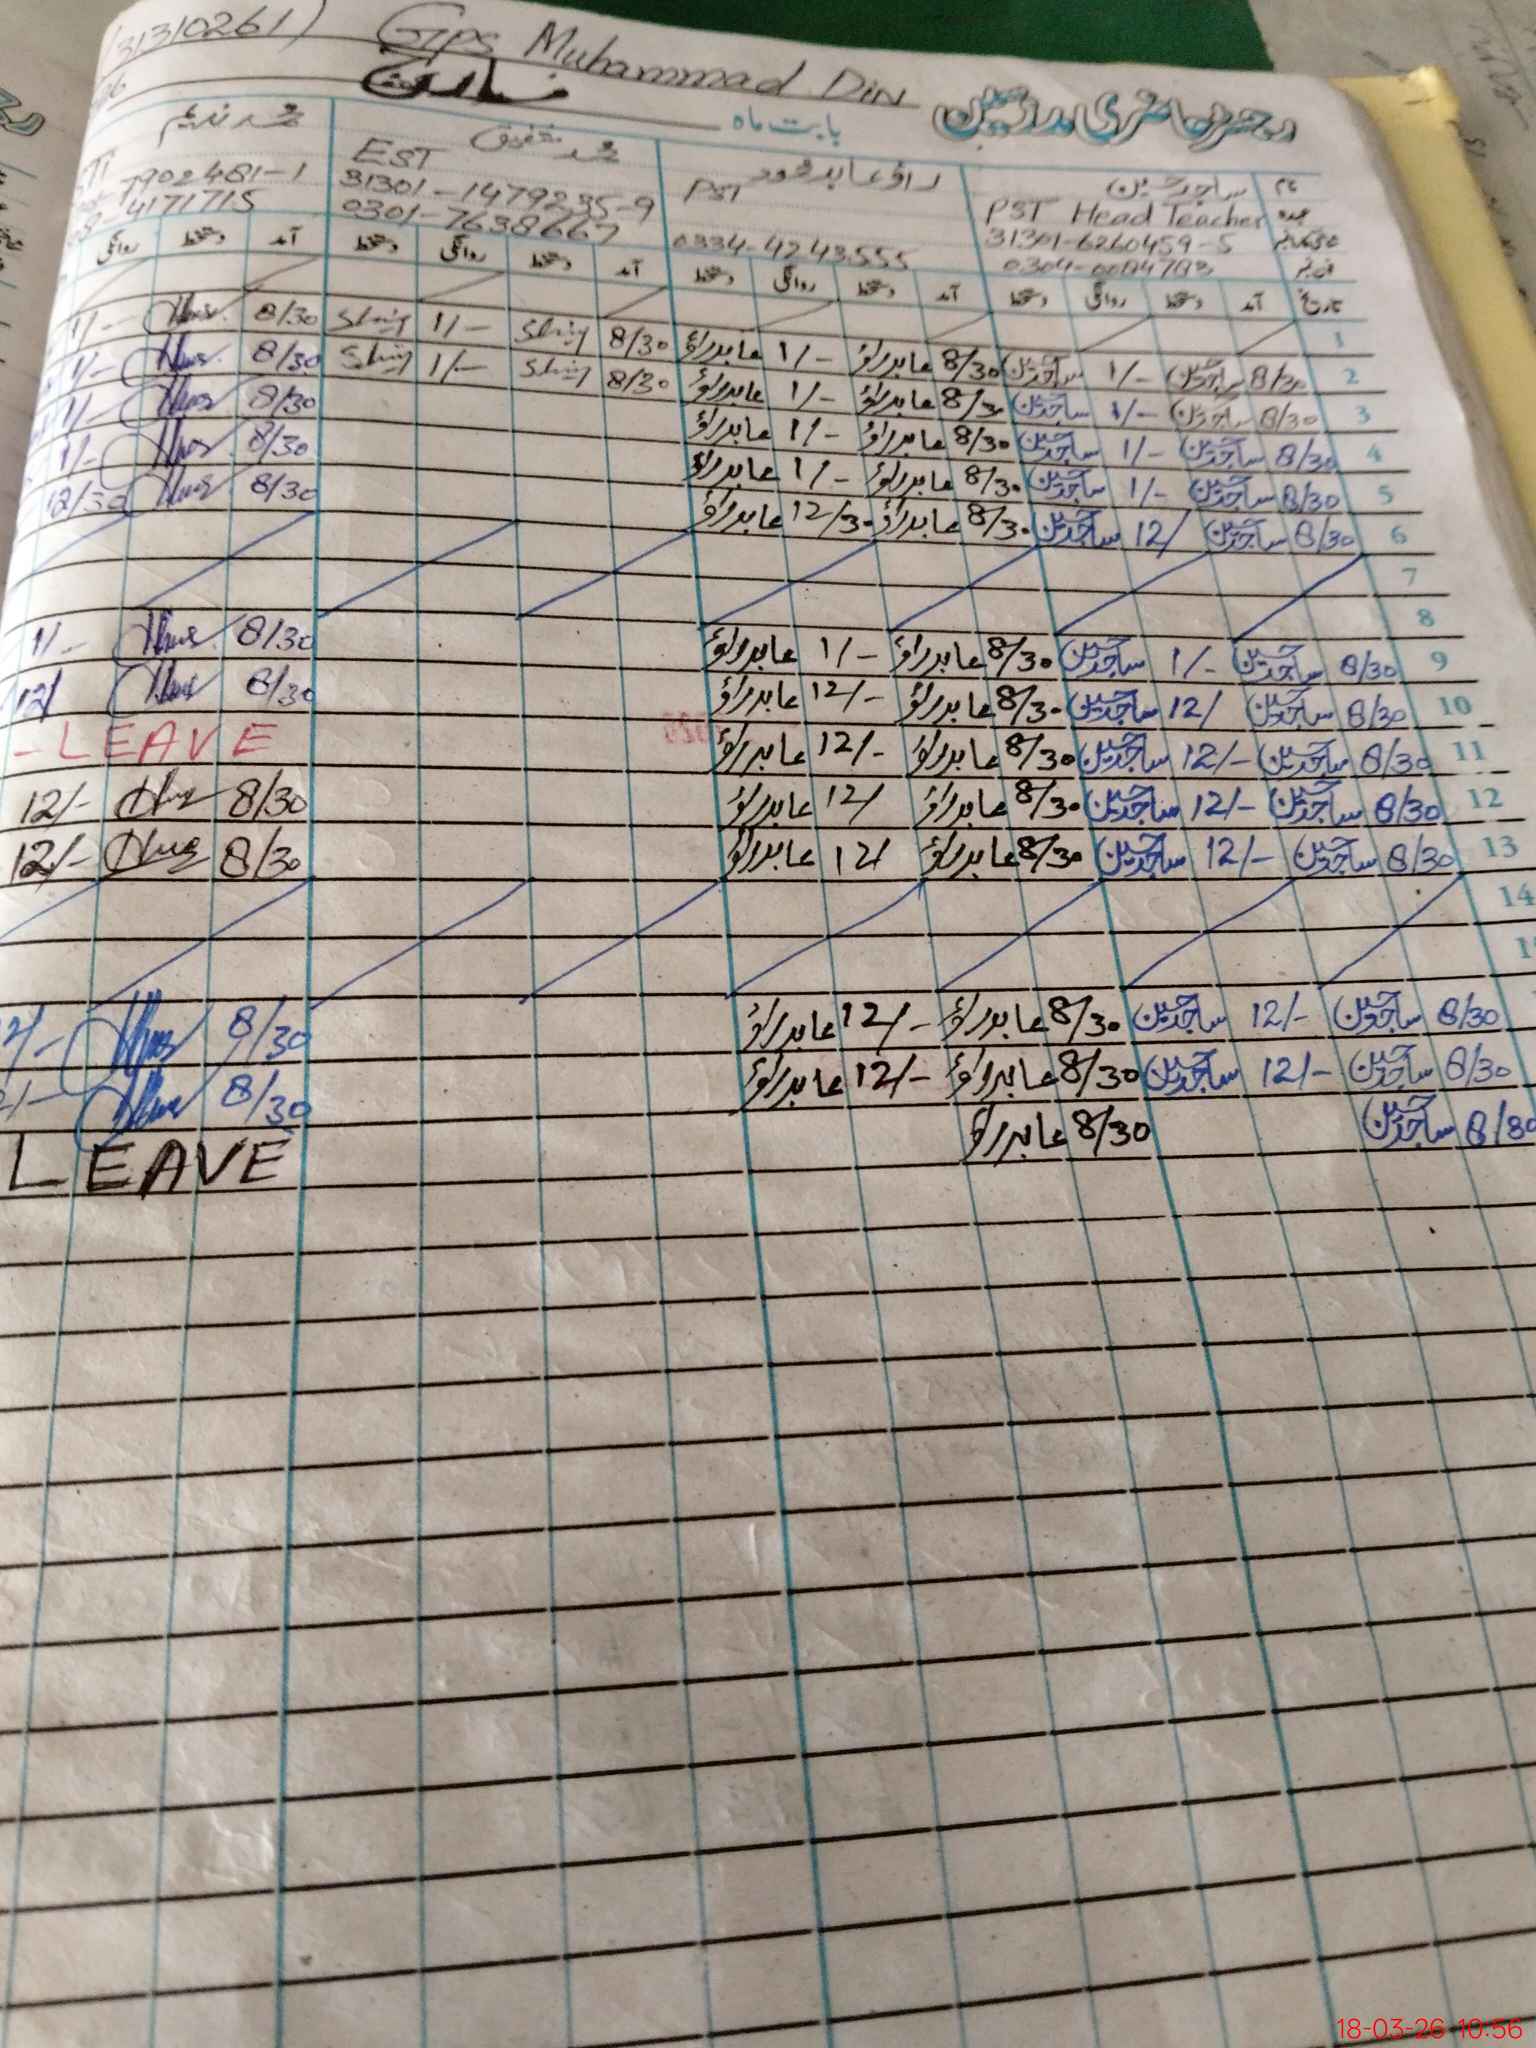 (31310261) Gps Muhammad Din
دفتر حاضری مدرسین بابت ماہ
نام ساجد حسین راؤ عابد محمود محمد شفیق محمد ندیم
عہدہ PST Head Teacher PST EST
31301-6260459-5 31301-1479235-9 7902481-1
0334-4243555 0301-7638667 4171715
تاریخ آمد دستخط روانگی دستخط آمد دستخط روانگی دستخط آمد دستخط روانگی دستخط آمد دستخط روانگی
1
2 8/30 ساجد حسین 1/- ساجد حسین 8/30 عابد راؤ 1/- عابد راؤ 8/30 1/- 8/30 1/-
3 8/30 ساجد حسین 1/- ساجد حسین 8/30 عابد راؤ 1/- عابد راؤ 8/30 1/- 8/30 1/-
4 8/30 ساجد حسین 1/- ساجد حسین 8/30 عابد راؤ 1/- عابد راؤ 8/30 1/-
5 8/30 ساجد حسین 1/- ساجد حسین 8/30 عابد راؤ 1/- عابد راؤ 8/30 1/-
6 8/30 ساجد حسین 12/ ساجد حسین 8/30 عابد راؤ 12/30 عابد راؤ 8/30 12/30
7
8
9 8/30 ساجد حسین 1/- ساجد حسین 8/30 عابد راؤ 1/- عابد راؤ 8/30 1/-
10 8/30 ساجد حسین 12/ ساجد حسین 8/30 عابد راؤ 12/- عابد راؤ 8/30 12/
11 8/30 ساجد حسین 12/- ساجد حسین 8/30 عابد راؤ 12/- عابد راؤ - LEAVE
12 8/30 ساجد حسین 12/- ساجد حسین 8/30 عابد راؤ 12/ عابد راؤ 8/30 12/-
13 8/30 ساجد حسین 12/- ساجد حسین 8/30 عابد راؤ 12/ عابد راؤ 8/30 12/-
14
8/30 ساجد حسین 12/- ساجد حسین 8/30 عابد راؤ 12/- عابد راؤ 8/30
8/30 ساجد حسین 12/- ساجد حسین 8/30 عابد راؤ 12/- عابد راؤ 8/30
8/30 ساجد حسین 8/30 عابد راؤ LEAVE
18-03-26 10:56